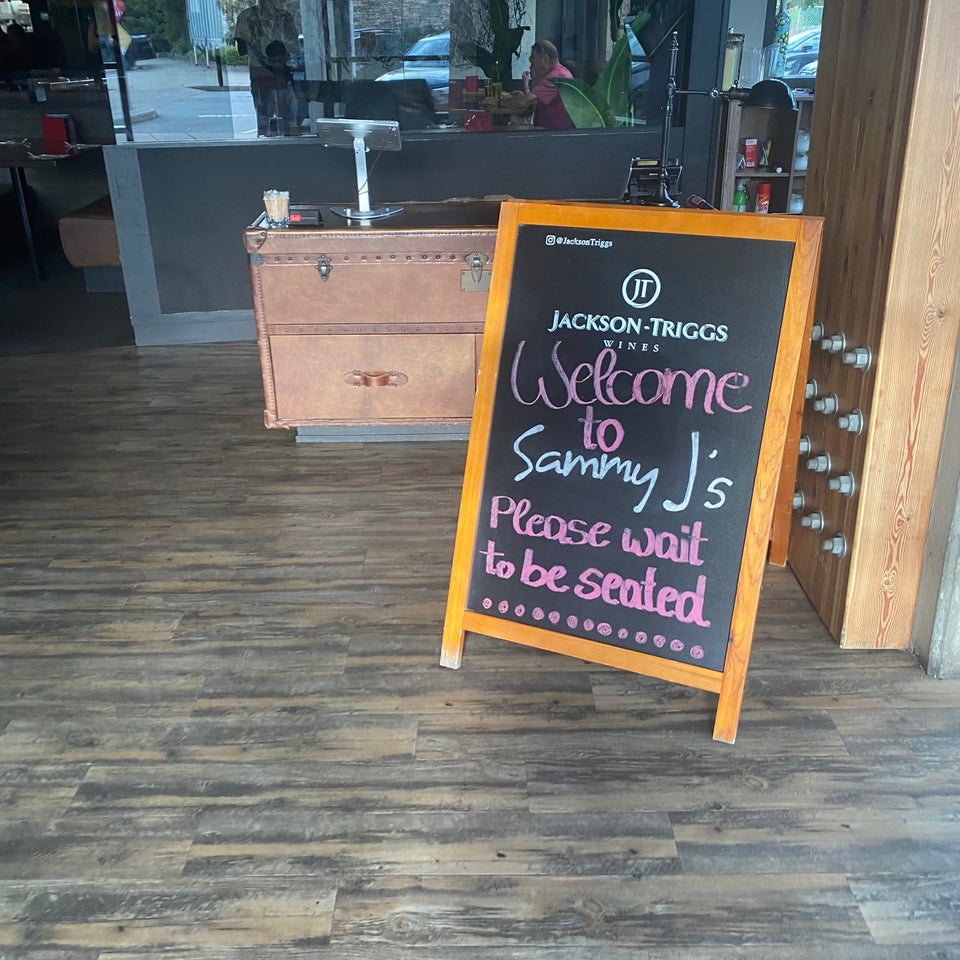 @JacksonTriggs
JT
JACKSON-TRIGGS
WINES
Welcome
to
Sammy J's
Please wait
to be seated